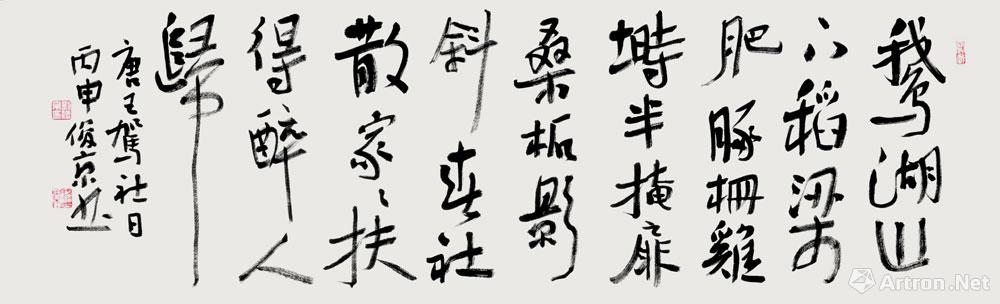 鹅湖山
下稻粱
肥豚柵雞
塒半掩扉
桑柘影
斜春社
散家々扶
得醉人
歸
唐王駕社日
丙申俊京书
Artron.Net